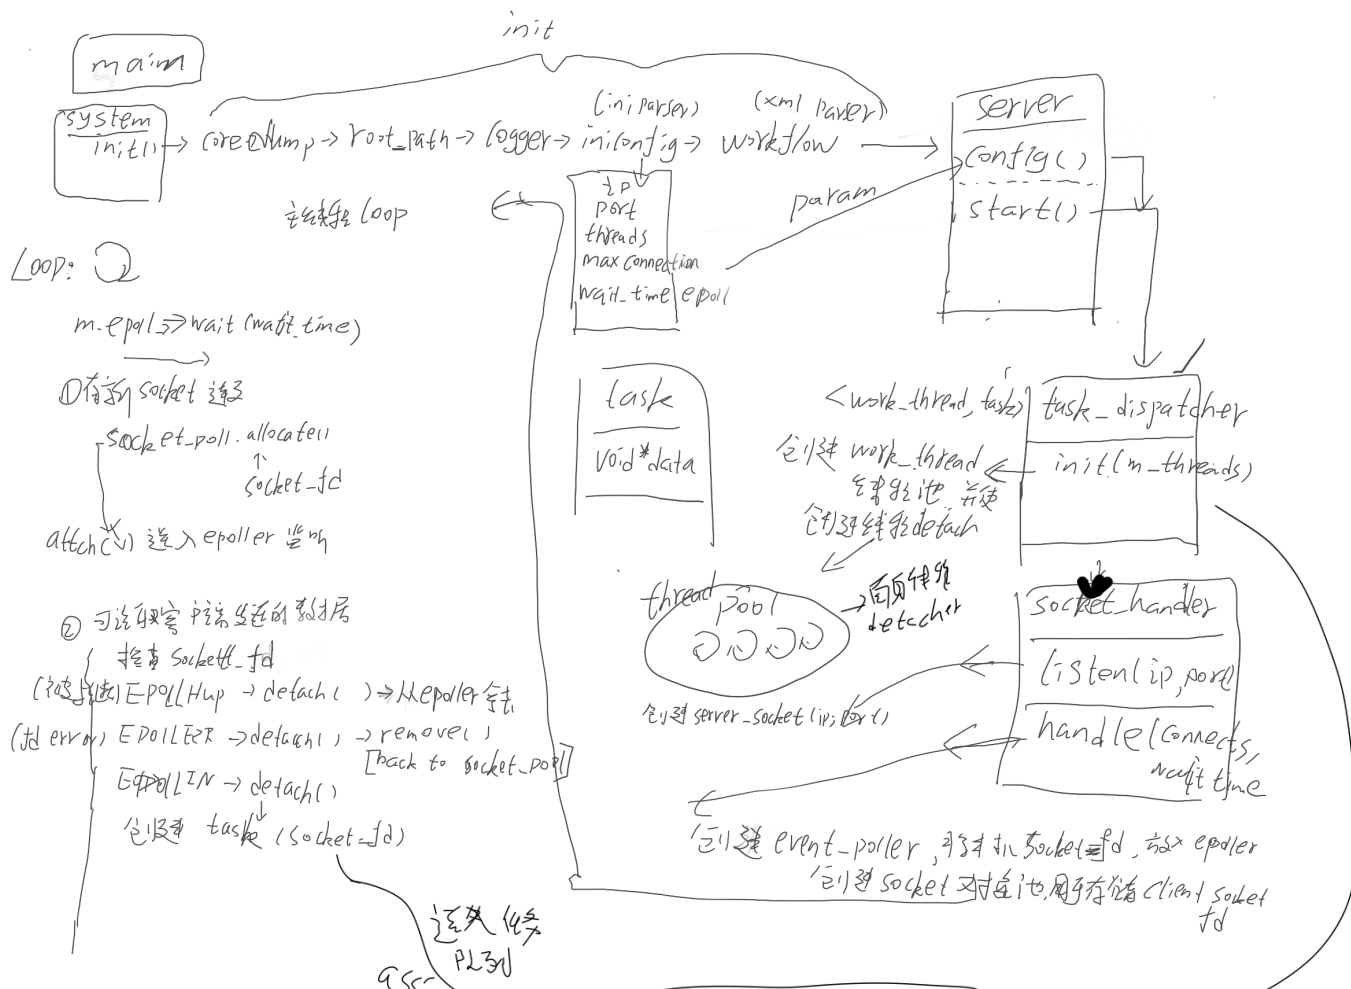 init
main
system
init()
coredump → root_path → logger → iniconfig → workflow
(iniparser)
(xml parser)
server
config()
start()
param
ip
port
threads
max connection
wait_time epoll
主线程 loop
Loop:
m_epoll → wait(wait_time)
①有新socket 连接
socket_poll.allocate()
↑
socket_fd
attch() 进入epoller 监听
② 可读取客户端发送的数据
检查 socket_fd
EPOLLHup → detach( ) → 从epoller拿走
(fd error) EPOLLER → detach() → remove()
[back to socket_pool]
EPOLLIN → detach()
创建 task (socket_fd)
task
void*data
<work_thread, task>
task_dispatcher
init(m_threads)
创建 work_thread
线程池 并使
创建线程detach
thread
pool
detacher
socket_handler
listen(ip, port)
handle(connects,
wait time
创建server_socket(ip, port)
创建 event_poller, socket_fd, 放入 epoller
创建 socket 对象池,用于存储 client socket
fd
任务
队列